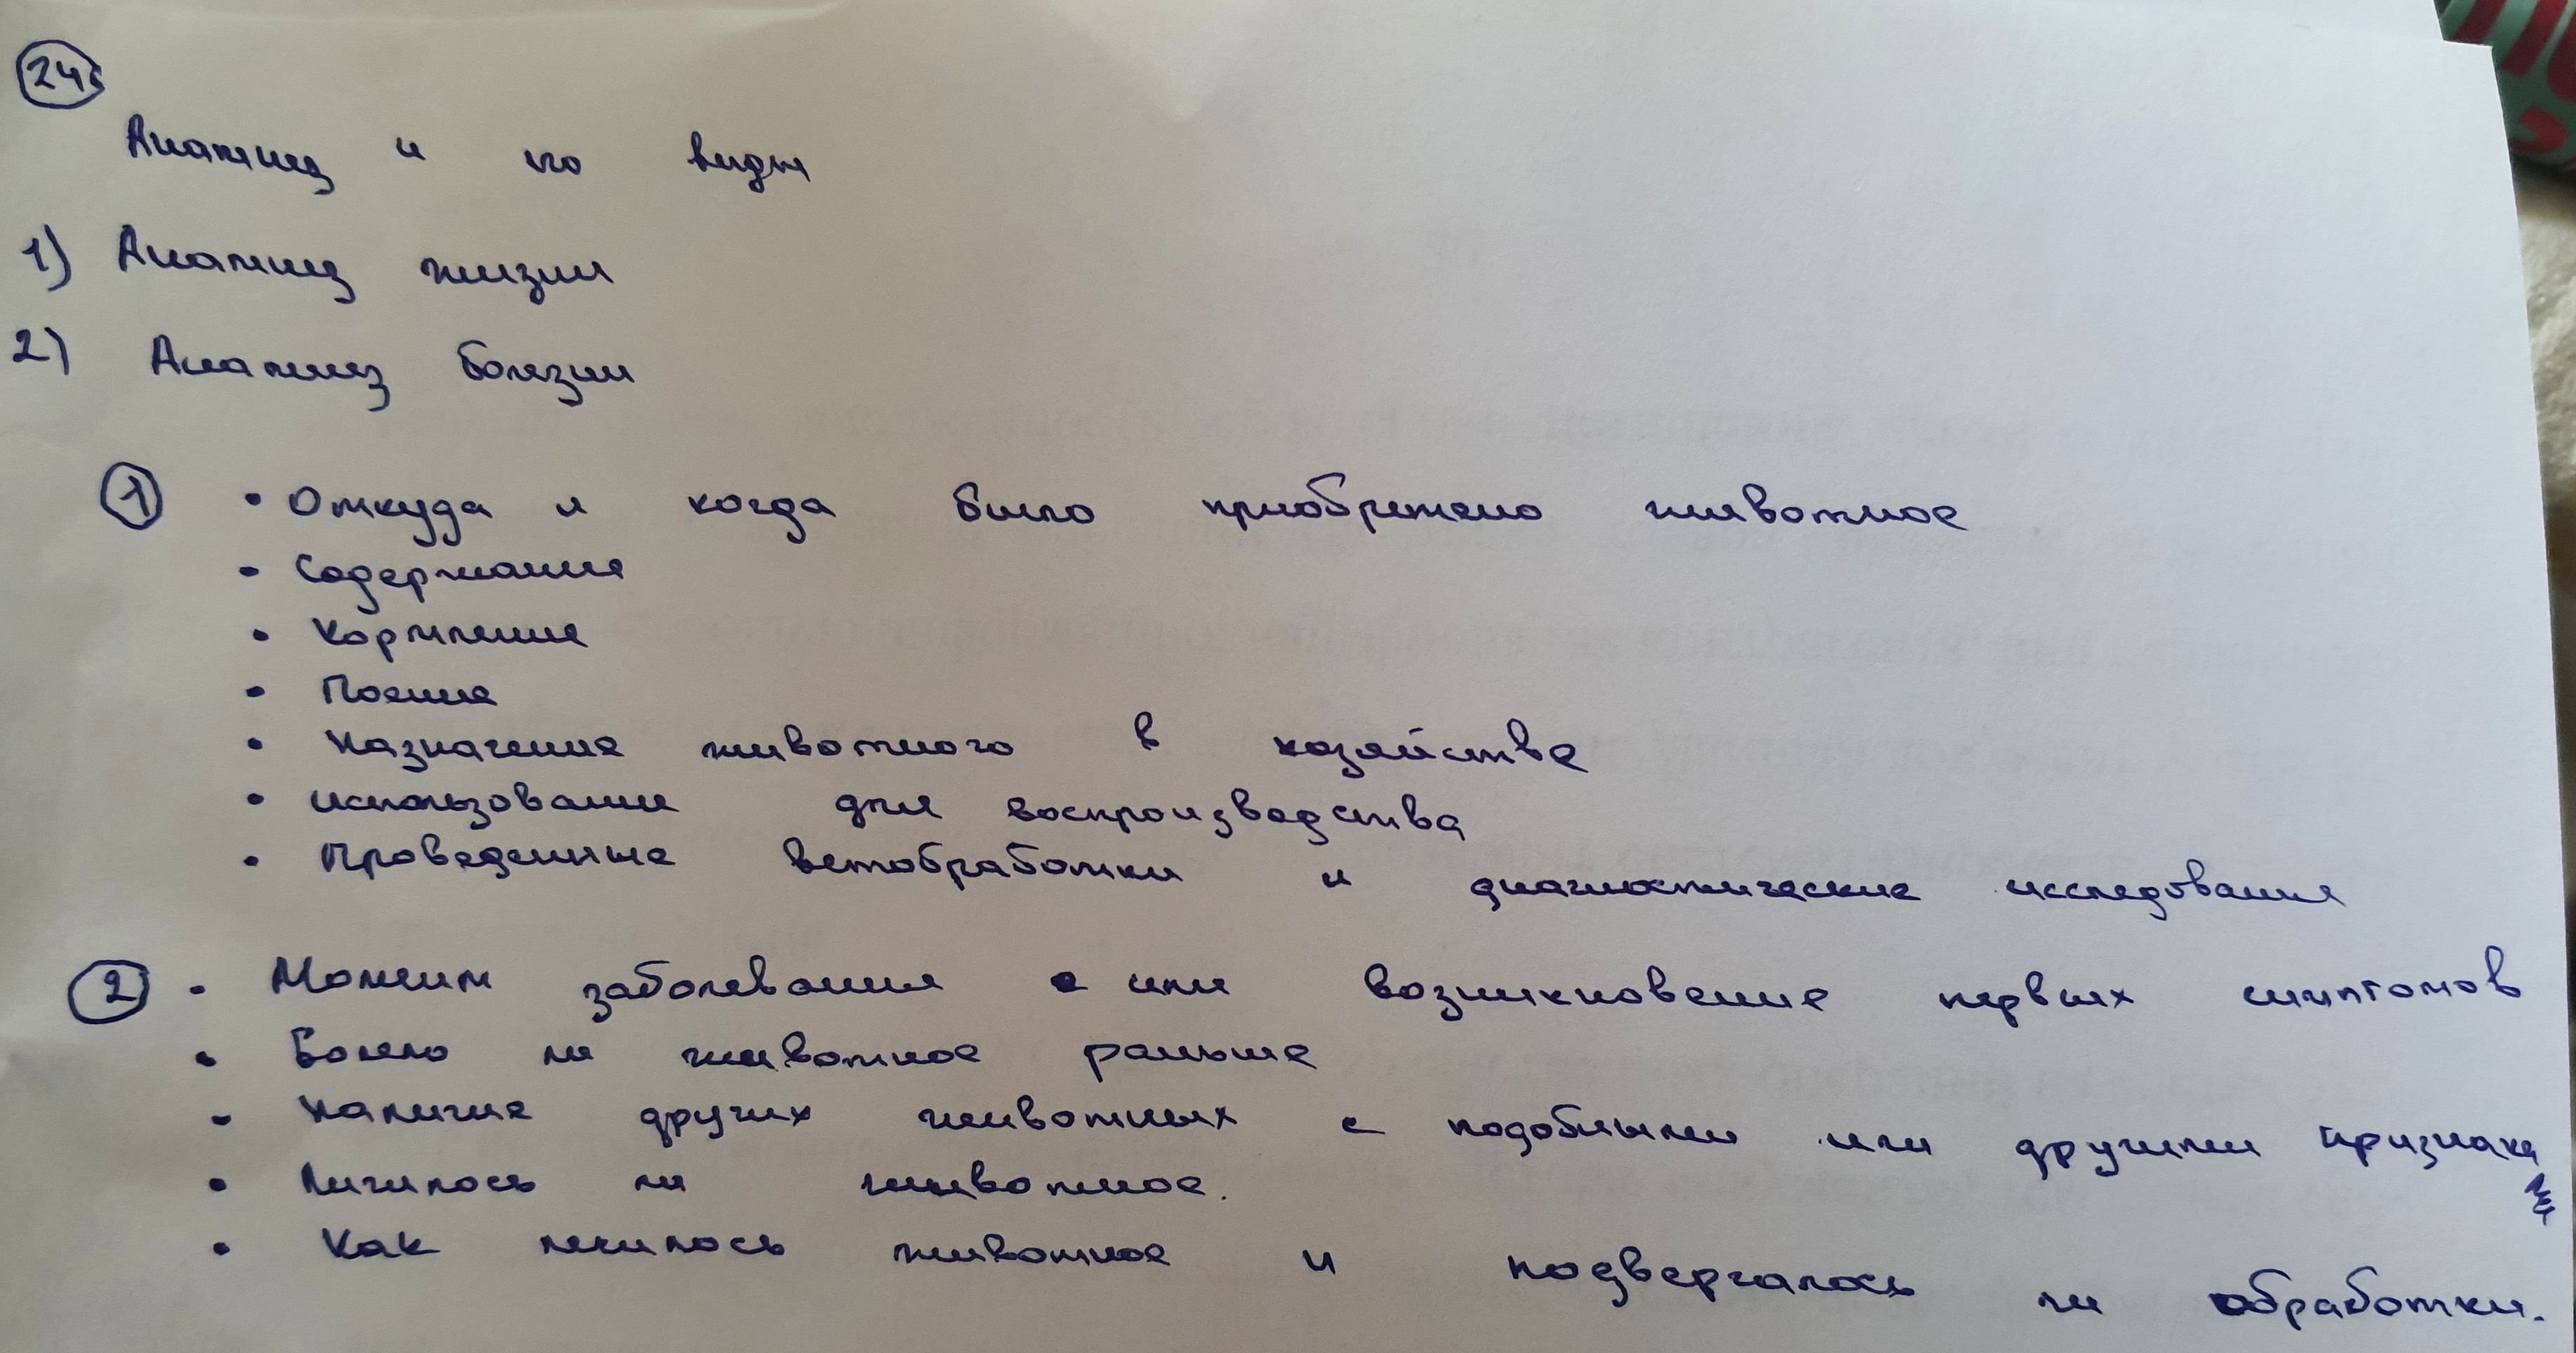 24
Анамнез и его виды
1) Анамнез жизни
2) Анамнез болезни
1 • Откуда и когда было приобретено животное
• Содержание
• Кормление
• Поение
• Назначение животного в хозяйстве
• использование для воспроизводства
• Проведенные ветобработки и диагностические исследования
2 • Момент заболевания или возникновение первых симптомов
• Болело ли животное раньше
• Наличие других животных с подобными или другими признака
• Лечилось ли животное.
• Как лечилось животное и подвергалось ли обработки.